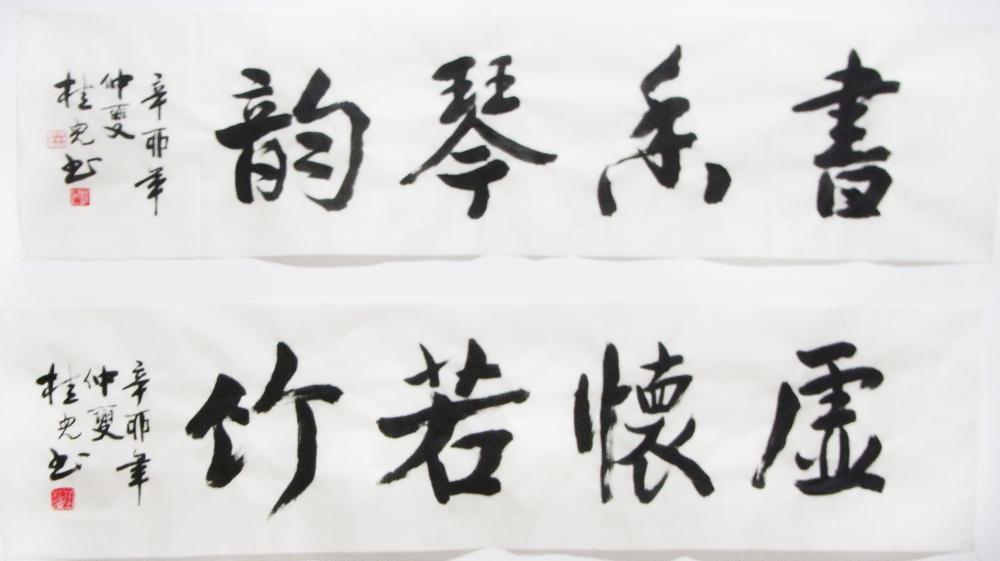 書香琴韵
辛卯年
仲夏
桂光书
虚懷若竹
辛卯年
仲夏
桂光书